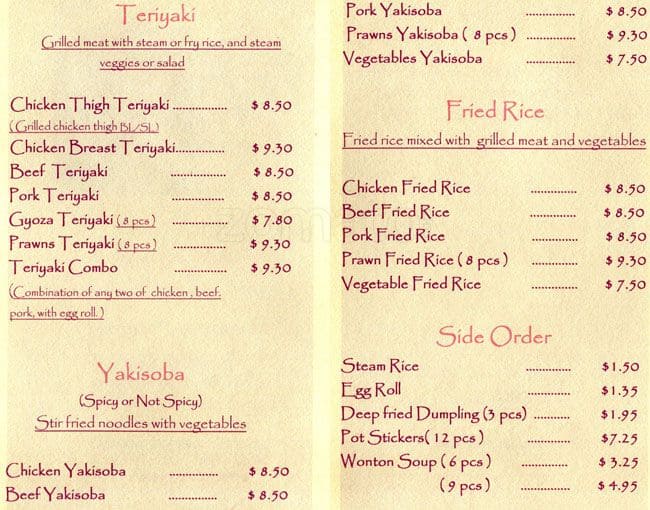 Teriyaki
Grilled meat with steam or fry rice, and steam
veggies or salad
Chicken Thigh Teriyaki ................ $ 8.50
( Grilled chicken thigh BL/SL )
Chicken Breast Teriyaki............... $ 9.30
Beef Teriyaki ............... $ 8.50
Pork Teriyaki ............... $ 8.50
Gyoza Teriyaki ( 8 pcs ) ............... $ 7.80
Prawns Teriyaki ( 8 pcs ) ............... $ 9.30
Teriyaki Combo ............... $ 9.30
(Combination of any two of chicken , beef.
pork, with egg roll. )
Yakisoba
(Spicy or Not Spicy)
Stir fried noodles with vegetables
Chicken Yakisoba ............... $ 8.50
Beef Yakisoba ............... $ 8.50
Pork Yakisoba ............... $ 8.50
Prawns Yakisoba ( 8 pcs ) ............... $ 9.30
Vegetables Yakisoba ............... $ 7.50
Fried Rice
Fried rice mixed with grilled meat and vegetables
Chicken Fried Rice .............. $ 8.50
Beef Fried Rice .............. $ 8.50
Pork Fried Rice .............. $ 8.50
Prawn Fried Rice ( 8 pcs ) .............. $ 9.30
Vegetable Fried Rice .............. $ 7.50
Side Order
Steam Rice .............. $ 1.50
Egg Roll .............. $ 1.35
Deep fried Dumpling (3 pcs) ........... $ 1.95
Pot Stickers( 12 pcs ) .............. $7.25
Wonton Soup ( 6 pcs ) .............. $ 3.25
( 9 pcs ) ............... $ 4.95